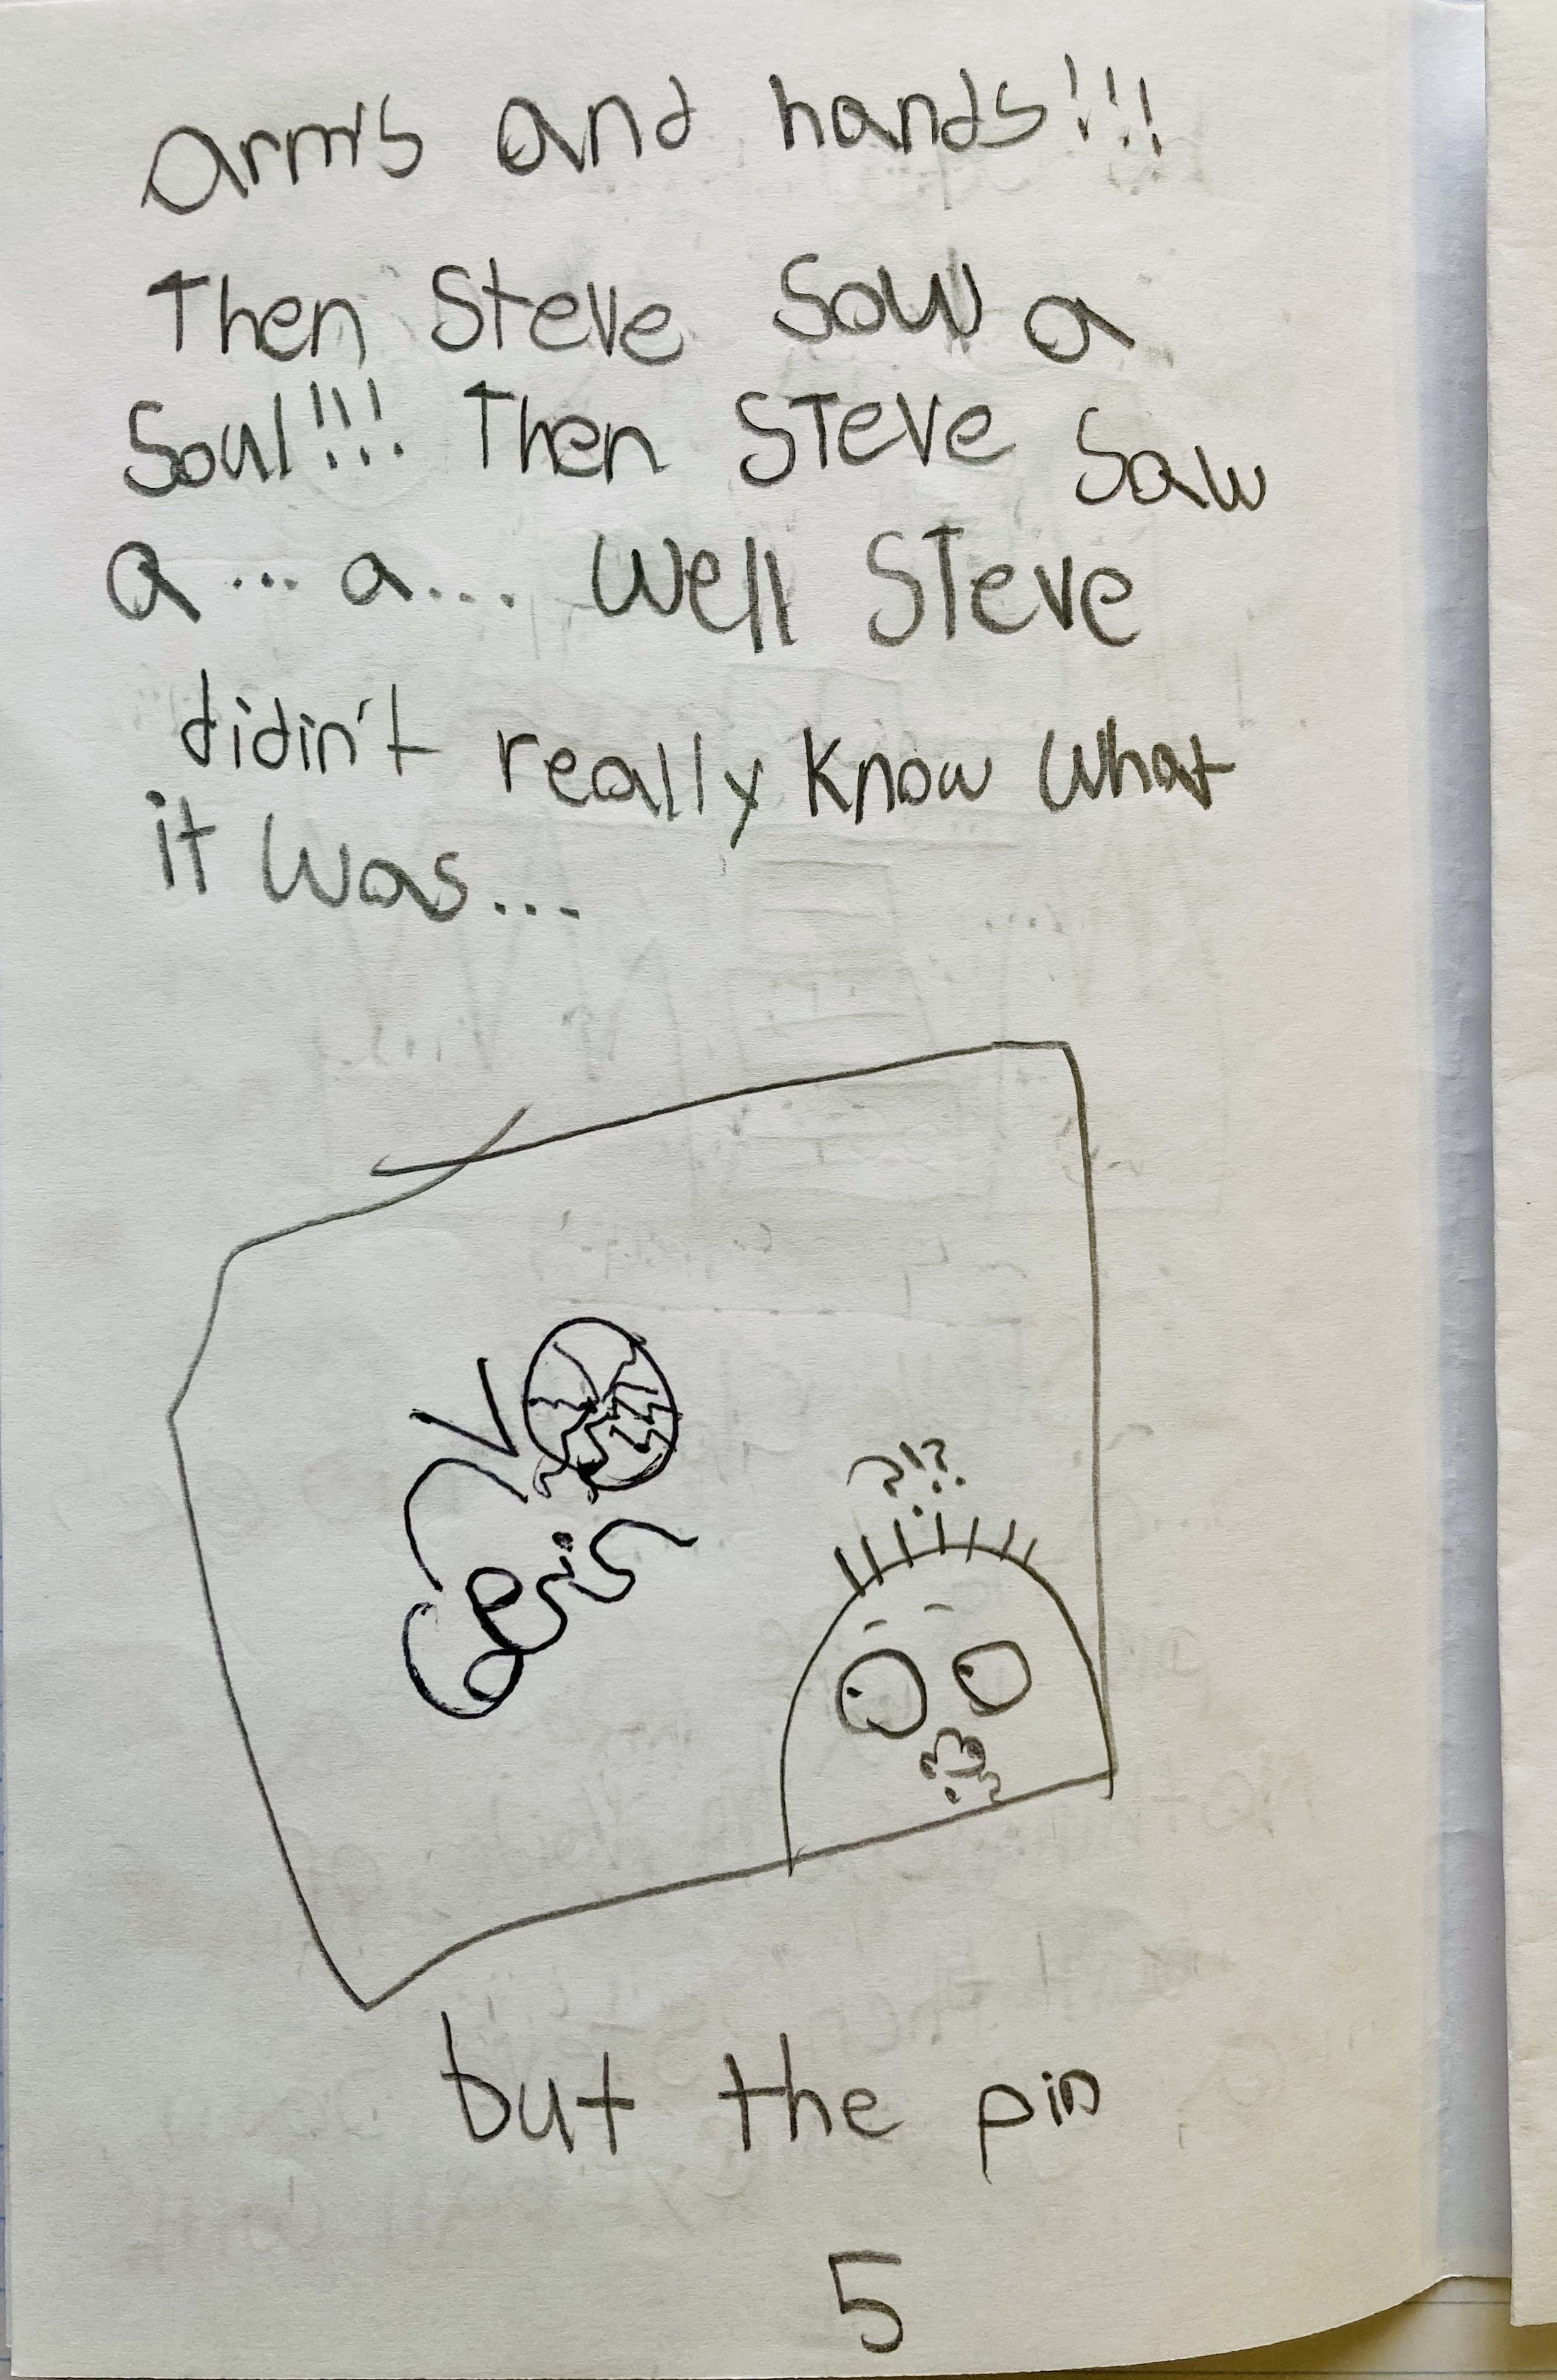 arm's and hands!!!
Then Steve saw a
soul!!! Then Steve saw
a... a... well Steve
didin't really know what
it was...
?!?
but the pin
5